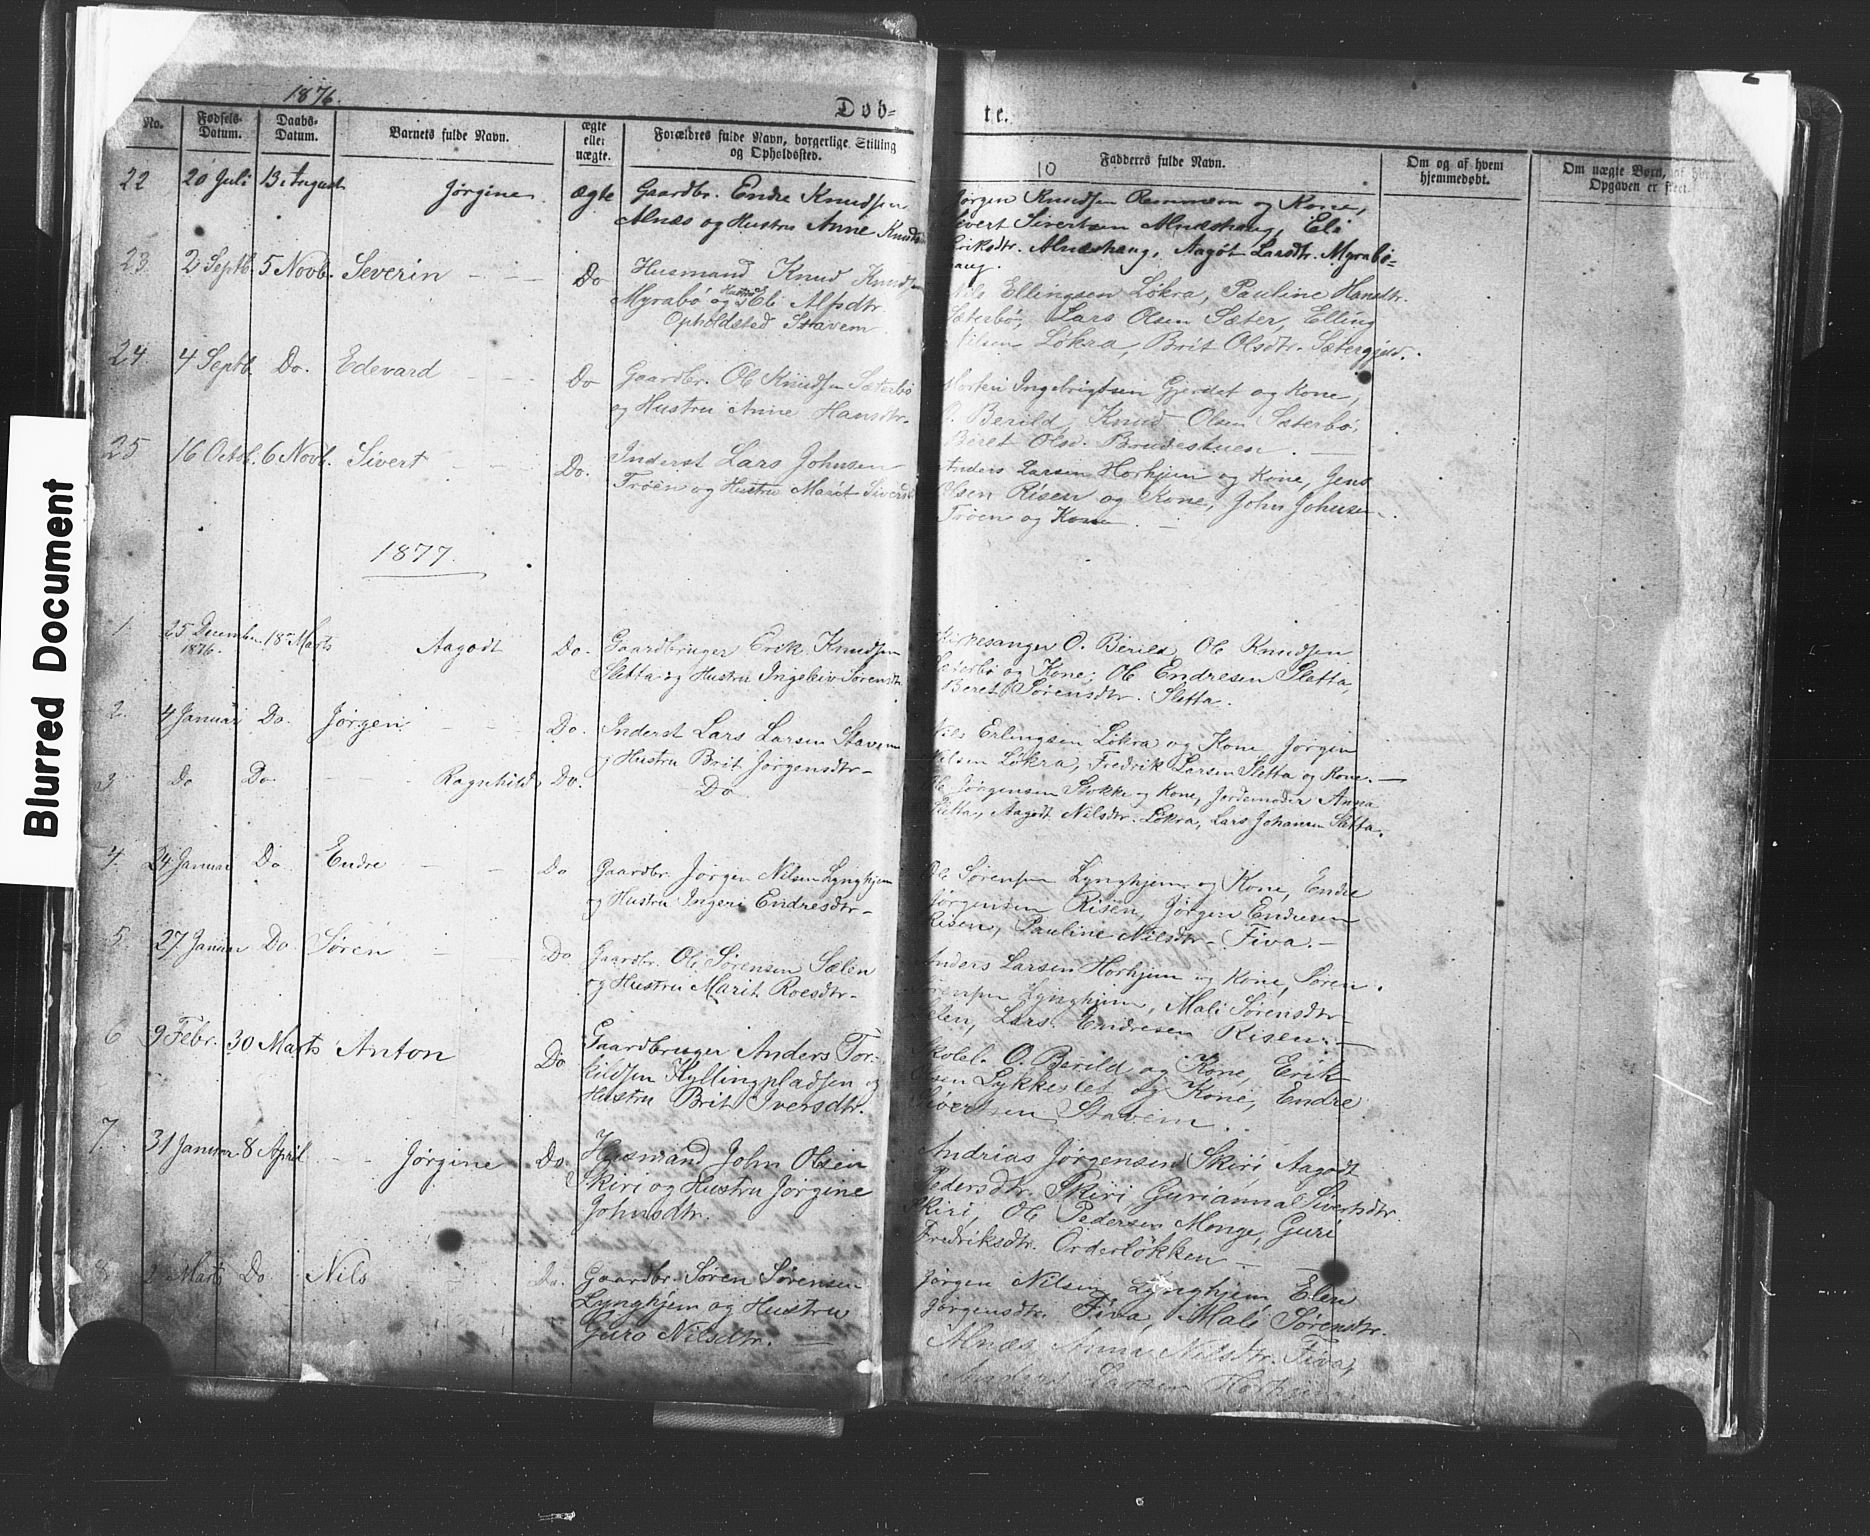 Blurred Document
1876.
Døb=
te.
10
2
No.
Fødsels-
Datum.
Daabs-
Datum.
Barnets fulde Navn.
ægte
eller
uægte.
Forældres fulde Navn, borgerlige Stilling
og Opholdssted.
Faddernes fulde Navn.
Om og af hvem
hjemmedøbt.
Om uægte Børn, af
Opgaven er skeet.
22 20 Juli 13 August Jørgine ægte Gaardbr. Endre Knudsen
Alnæs og Hustru Anne Knudsd
Jørgen Knudsen Remmem og Kone,
Sivert Sivertsen Alnæshaug, Eli
Eriksdtr. Alnæshaug, Aagot Larsdtr. Myrabø=
haug.
23. 2 Septb. 5 Novb. Severin Do Husmand Knud Knudsen
Myrabø og Hustru Eli Alfsdtr.
Opholdsted Stavem
Nils Ellingsen Løkra, Pauline Hansdtr.
Sæterbø, Lars Olsen Sæter, Elling
Nilsen Løkra, Brit Olsdtr. Sætergjerd.
24. 4 Septb. Do. Edevard Do Gaardbr. Ole Knudsen Sæterbø
og Hustru Anne Hansdtr.
Morten Ingebrigtsen Gjerdet og Kone,
O. Berild, Knud Olsen Sæterbø,
Beret Olsd. Brudestuen.
25 16 Octob. 6 Novb. Sivert Do. Inderst Lars Johnsen
Trøen og Hustru Marit Siversd
Anders Larsen Horhjem og Kone, Jens
Olsen Risen og Kone, John Johnsen
Trøen og Kone.
1877.
1 25 December 18 Marts Aagodt Do. Gaardbruger Erik Knudsen
1876.
Sletta og Hustru Ingeleiv Sørensdtr.
Kirkesanger O. Berild, Ole Knudsen
Sæterbø og Kone, Ole Endresen Sletta,
Beret Sørensdtr. Sletta.
2. 4 Januari Do. Jørgen Do. Inderst Lars Larsen Stavem
og Hustru Brit Jørgensdtr.
Nils Erlingsen Løkra og Kone, Jørgen
Nilsen Løkra, Fredrik Larsen Sletta og Kone.
3 Do Do. Ragnhild Do. Do
Ole Jørgensen Stokke og Kone, Jordemoder Anna
Sletta, Aagodt Nilsdtr. Løkra, Lars Johansen Sletta.
4. 24 Januar Do Endre Do Gaardbr. Jørgen Nilsen Lynghjem
og Hustru Ingeri Endresdtr.
Ole Sørensen Lynghjem og Kone, Endre
Jørgensen Risen, Jørgen Endresen
Risen, Pauline Nilsdtr. Fiva.
5. 27 Januar Do. Søren Do. Gaardbr. Ole Sørensen Sælen
og Hustru Marit Roesdtr.
Anders Larsen Horhjem og Kone, Søren
Sørensen Lynghjem, Mali Sørensdtr.
Sælen, Lars Endresen Risen.
6 9 Febr. 30 Marts Anton Do Gaardbruger Anders Tor-
kildsen Kyllingpladsen og
Hustru Brit Iversdtr.
Skolel. O. Berild og Kone, Erik
Olsen Lykkeslet og Kone, Endre
Sivertsen Stavem.
7. 31 Januar 8 April Jørgine Do. Husmand John Olsen
Skiri og Hustru Jørgine
Johnsdtr.
Andrias Jørgensen Skiri, Aagodt
Pedersdtr. Skiri, Gurianna Sivertsdtr.
Skiri, Ole Pedersen Monge, Guri
Fredriksdtr. Orderløkken
8 2 Marts Do Nils Do. Gaardbr. Søren Sørensen
Lynghjem og Hustru
Guro Nilsdtr.
Jørgen Nilsen Lynghjem, Elen
Jørgensdtr. Fiva, Mali Sørensdtr.
Alnæs, Anna Nilsdtr. Fiva,
Anders Larsen Horhjem.